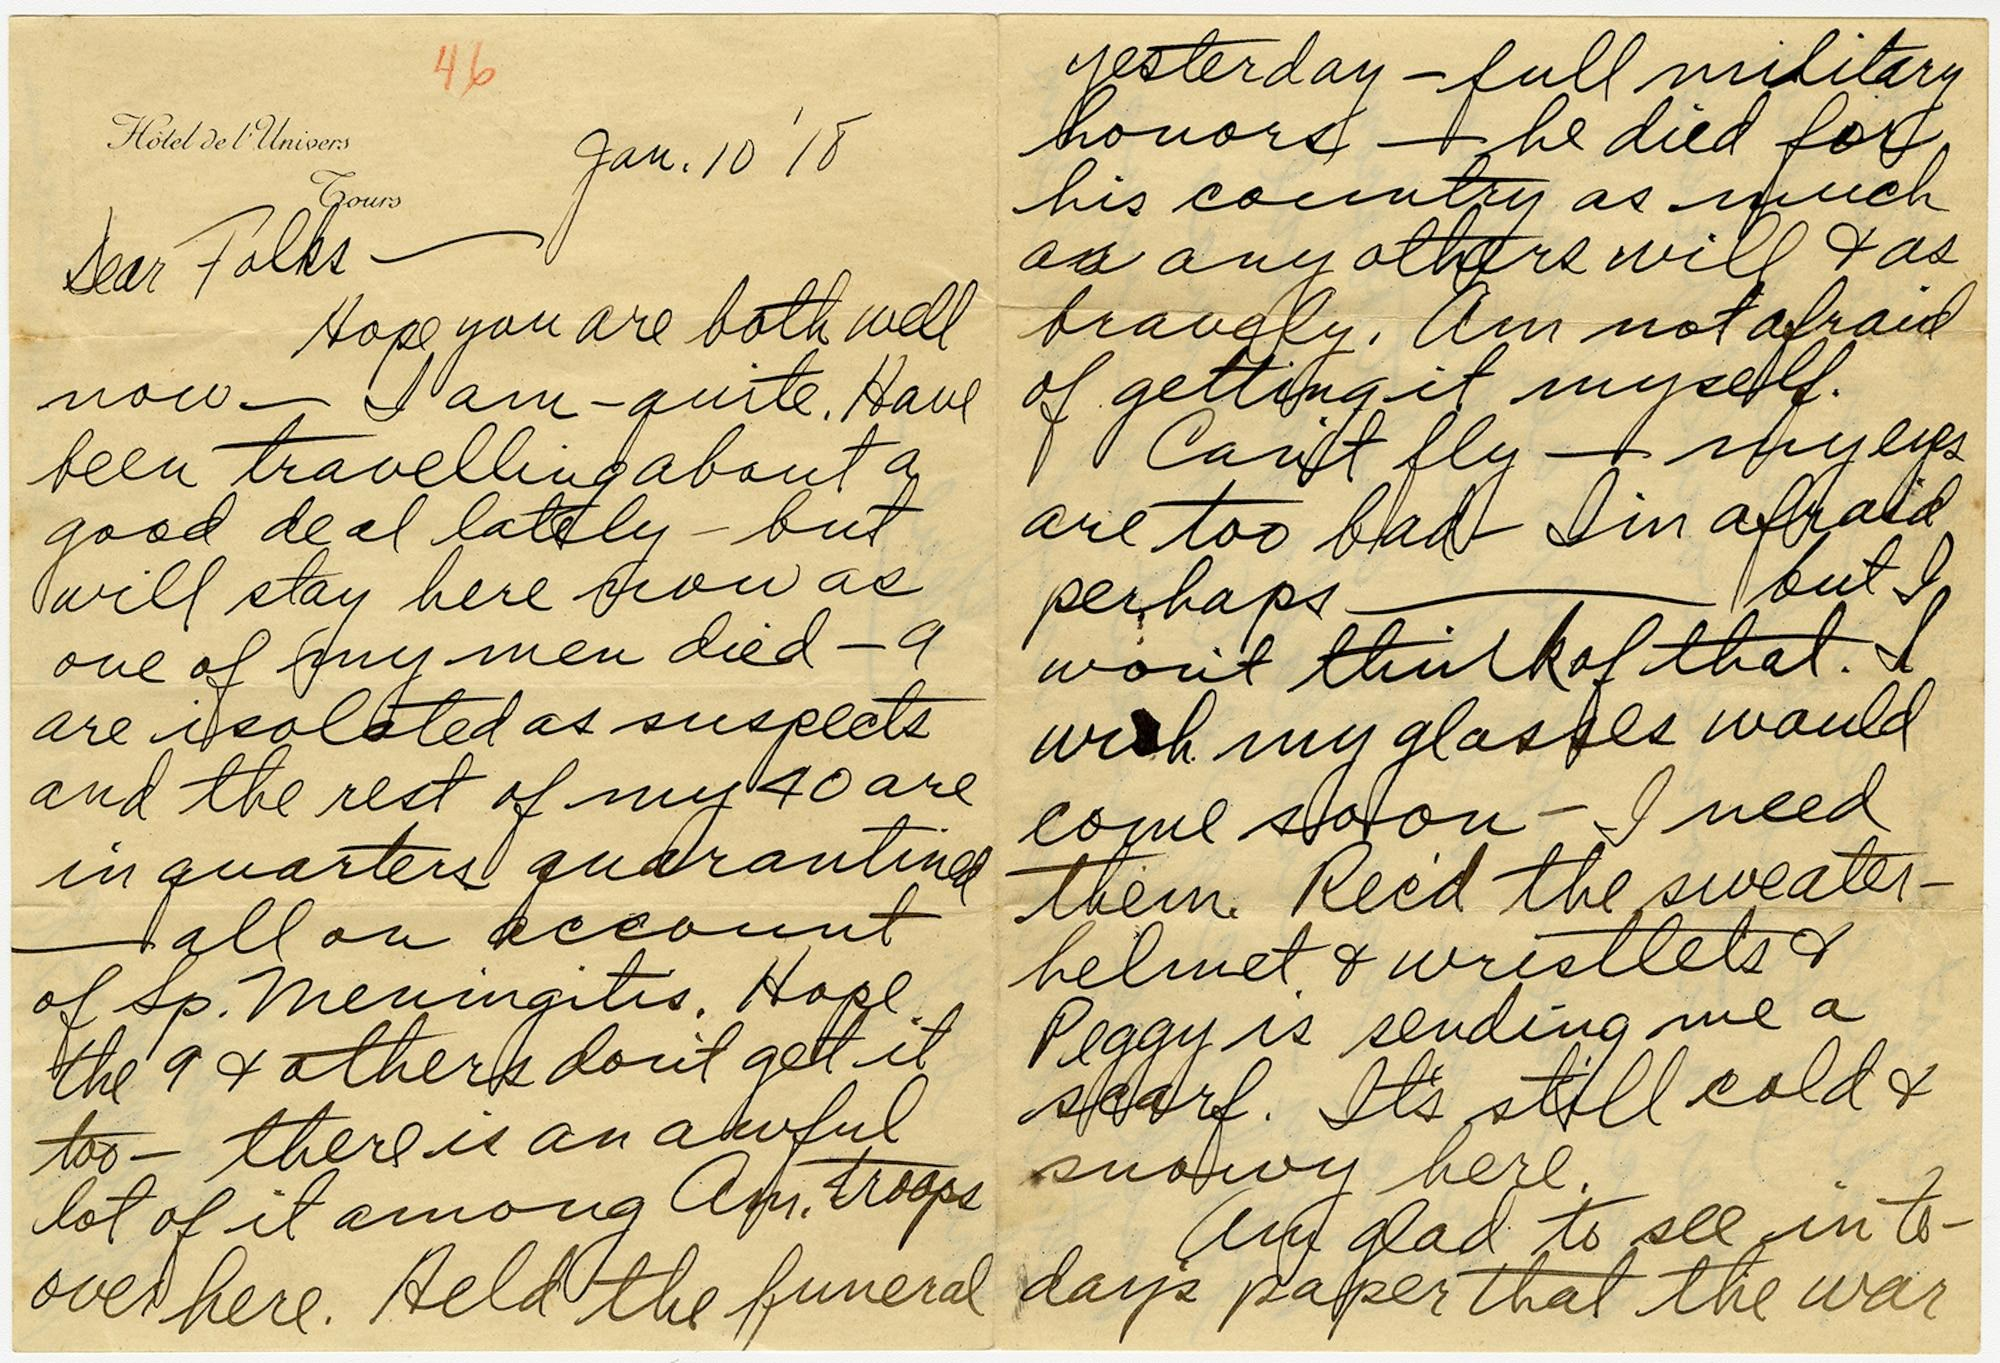 46
Hôtel de l'Univers
Tours
Jan. 10 '18
Dear Folks —
Hope you are both well
now — I am - quite. Have
been travelling about a
good deal lately - but
will stay here now as
one of my men died - 9
are isolated as suspects
and the rest of my 40 are
in quarters quarantined
— all on account
of Sp. Meningitis. Hope
the 9 & others don't get it
too - there is an awful
lot of it among Am. troops
over here. Held the funeral
yesterday - full military
honors — he died for
his country as much
as any others will & as
bravely. Am not afraid
of getting it myself.
Can't fly — my eyes
are too bad - I'm afraid
perhaps — but I
won't think of that. I
wish my glasses would
come soon - I need
them. Rec'd the sweater -
helmet & wristlets &
Peggy is sending me a
scarf. It's still cold &
snowy here.
Am glad to see in to-
day's paper that the war